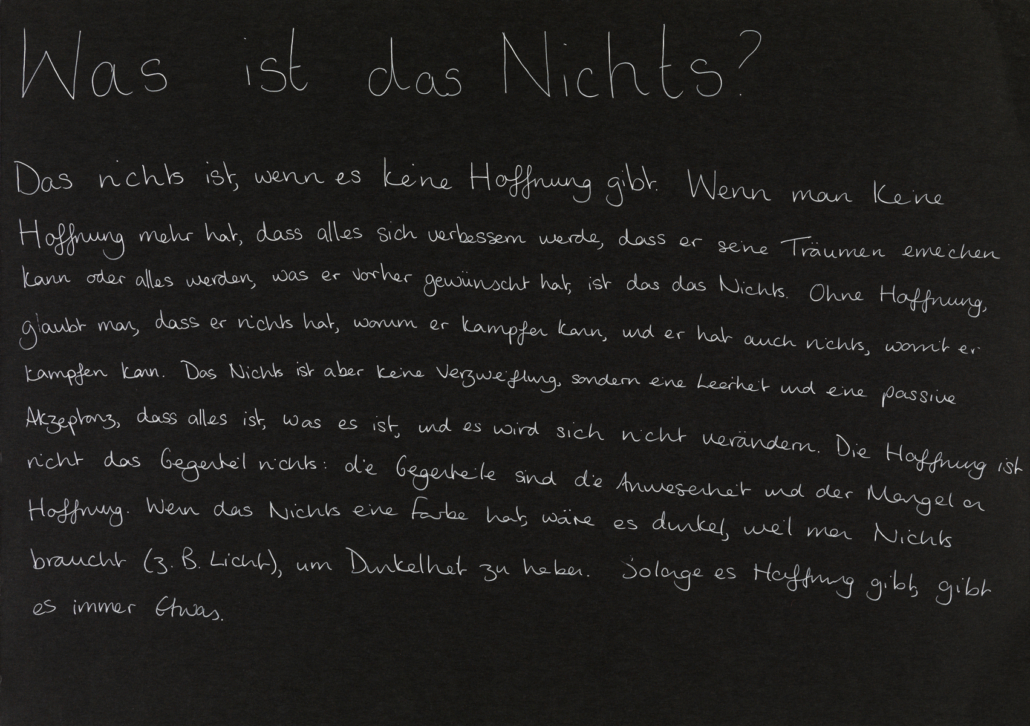 Was ist das Nichts?
Das nichts ist, wenn es keine Hoffnung gibt. Wenn man keine
Hoffnung mehr hat, dass alles sich verbessern werde, dass er seine Träumen erreichen
kann oder alles werden, was er vorher gewünscht hat, ist das das Nichts. Ohne Hoffnung,
glaubt man, dass er nichts hat, worum er kampfen kann, und er hat auch nichts, womit er
kampfen kann. Das Nichts ist aber keine Verzweiflung, sondern eine Leerheit und eine passive
Akzeptanz, dass alles ist, was es ist, und es wird sich nicht verändern. Die Hoffnung ist
nicht das Gegenteil nichts: die Gegenteile sind die Anwesenheit und der Mangel an
Hoffnung. Wenn das Nichts eine Farbe hat, wäre es dunkel, weil man Nichts
braucht (z.B. Licht), um Dunkelheit zu haben. Solange es Hoffnung gibt, gibt
es immer Etwas.